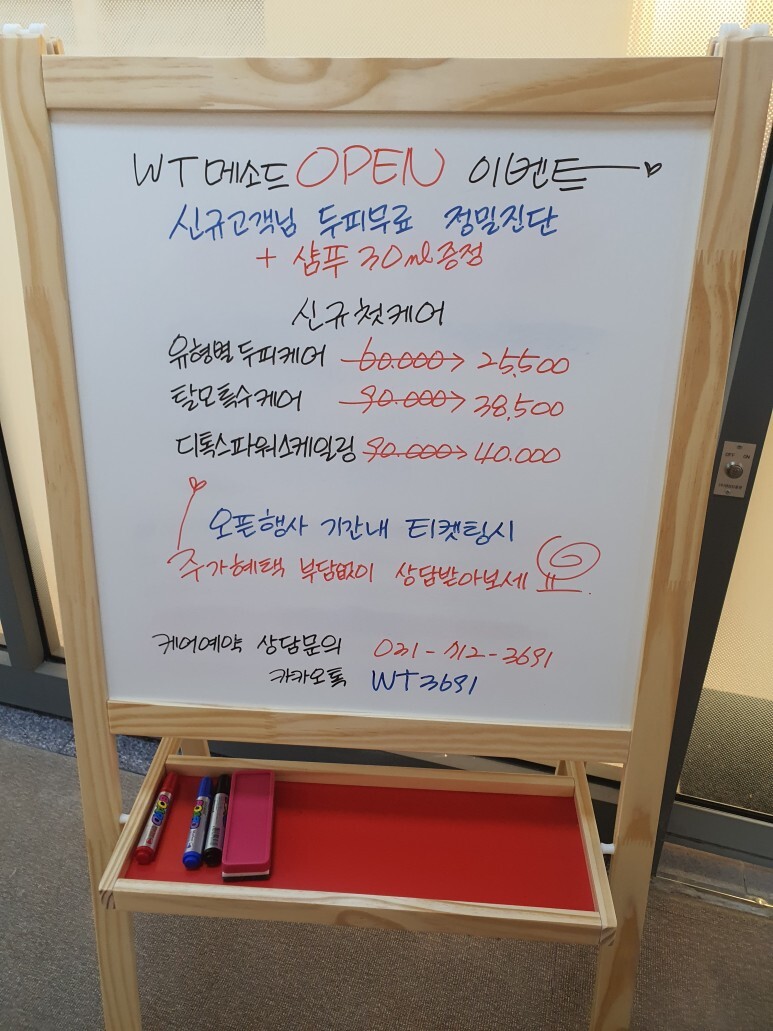 WT메소드 OPEN 이벤트
신규고객님 두피무료 정밀진단
+ 샴푸 30ml증정
신규첫케어
유형별두피케어 60.000→ 25,500
탈모특수케어 90.000→ 38,500
디톡스파워스케일링 90.000→ 40.000
오픈행사 기간내 티켓팅시
추가혜택 부담없이 상담받아보세요.
케어예약 상담문의 031-712-3691
카카오톡 WT3691